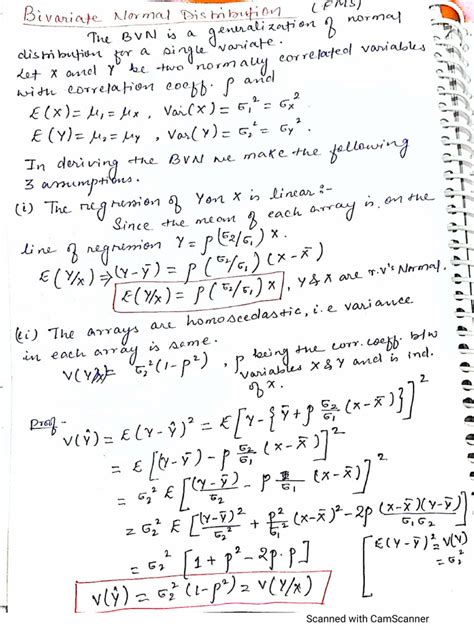 Bivariate Normal Distribution (FMS)
The BVN is a generalization of normal
distribution for a single variate.
Let X and Y be two normally correlated variables
with correlation coeff. ρ and
E(X) = μ₁ = μₓ, Var(X) = σ₁² = σₓ²
E(Y) = μ₂ = μᵧ, Var(Y) = σ₂² = σᵧ².
In deriving the BVN we make the following
3 assumptions.
(i) The regression of Y on X is linear:-
Since the mean of each array is on the
line of regression Y = ρ(σ₂/σ₁) X.
E(Y/x) ⇒ (Y-ȳ) = ρ(σ₂/σ₁)(x-x̄)
E(Y/x) = ρ(σ₂/σ₁) x, Y & X are r.v's Normal.
(ii) The arrays are homoscedastic, i.e variance
in each array is same.
V(Y/x) = σ₂²(1-ρ²), ρ being the corr. coeff. b/w
variables X & Y and is ind.
of X.
Proof- V(ŷ) = E(Y-ŷ)² = E[Y-{ȳ+ρ σ₂/σ₁ (x-x̄)}]²
= E[(Y-ȳ) - ρ σ₂/σ₁ (x-x̄)]²
= σ₂² E[(Y-ȳ)/σ₂ - ρ/σ₁ (x-x̄)]²
= σ₂² E[(Y-ȳ)²/σ₂² + ρ²/σ₁² (x-x̄)² - 2ρ (x-x̄)(Y-ȳ)/σ₁σ₂]
= σ₂² [1+ρ²-2ρ.ρ] [E(Y-ȳ)² = V(Y)
= σ₂²
V(ŷ) = σ₂²(1-ρ²) = V(Y/x)
Scanned with CamScanner